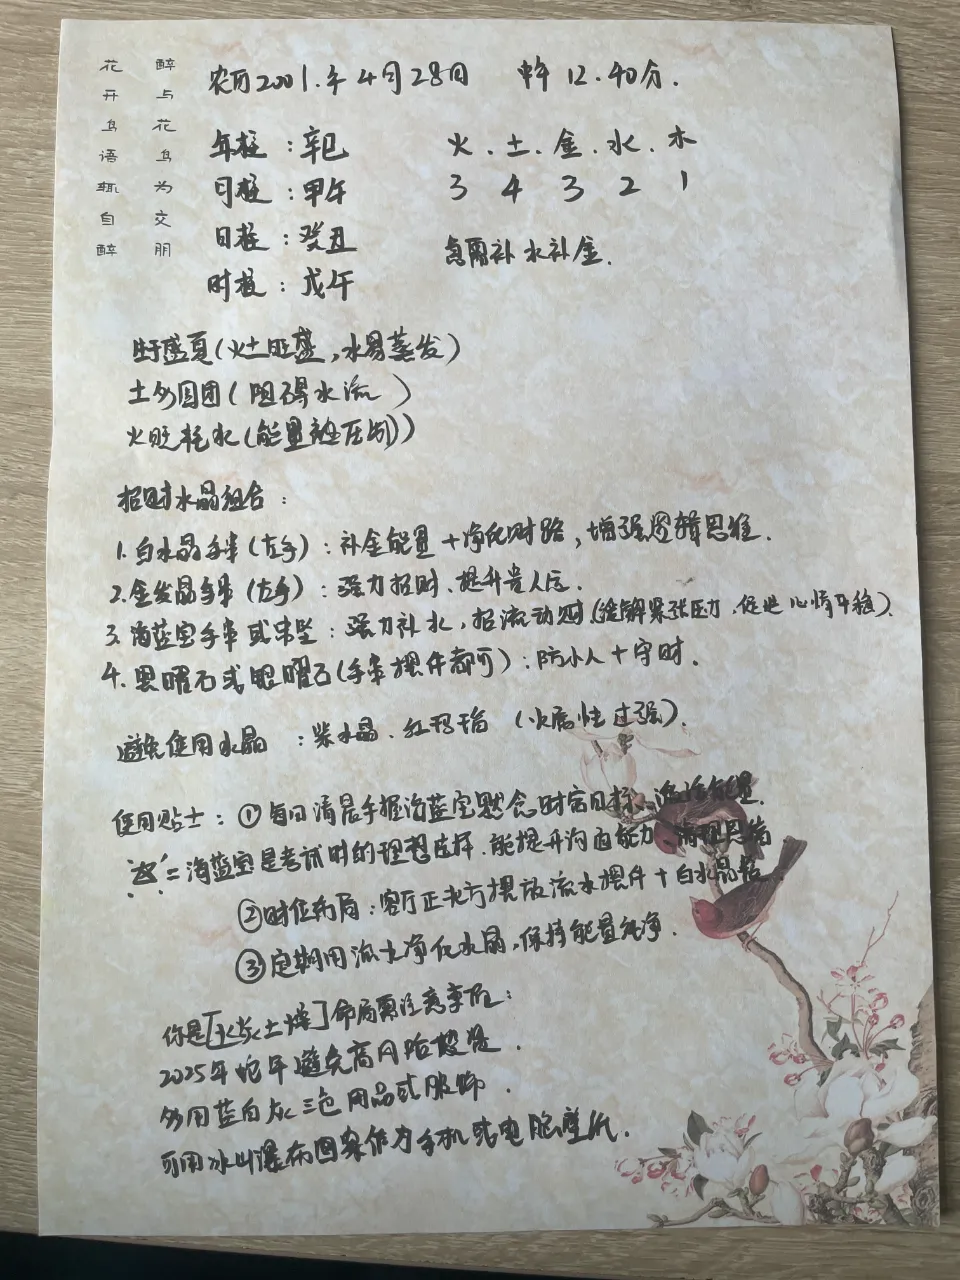 醉与花鸟为交朋
花开鸟语辄自醉
农历2001.年4月28日 中午12.40分.
年柱：辛巳
月柱：甲午
日柱：癸丑
时柱：戊午
火.土.金.水.木
3 4 3 2 1
急需补水补金.
生于盛夏(火土旺盛,水易蒸发)
土多围困(阻碍水流)
火旺耗水(能量被压制)
招财水晶组合：
1.白水晶手串(左手)：补金能量+净化财路,增强逻辑思维.
2.金发晶手串(左手)：强力招财、提升贵人运.
3.海蓝宝手串或吊坠：强力补水,招流动财.(缓解紧张压力,促进心情平稳).
4.黑曜石或银曜石(手串摆件都可)：防小人+守财.
避免使用水晶：紫水晶、红玛瑙(火属性过强).
使用贴士：①每日清晨手握海蓝宝默念财富目标、连接能量.
注：海蓝宝是考试时的理想选择.能提升沟通能力、清理思绪
②财位布局：客厅正北方摆放流水摆件+白水晶簇
③定期用流水净化水晶,保持能量纯净.
你是[水炎土燥]命局需注意事项：
2025年蛇年避免高风险投资.
多用蓝白灰三色用品或服饰.
可用冰山瀑布图案作为手机或电脑壁纸.